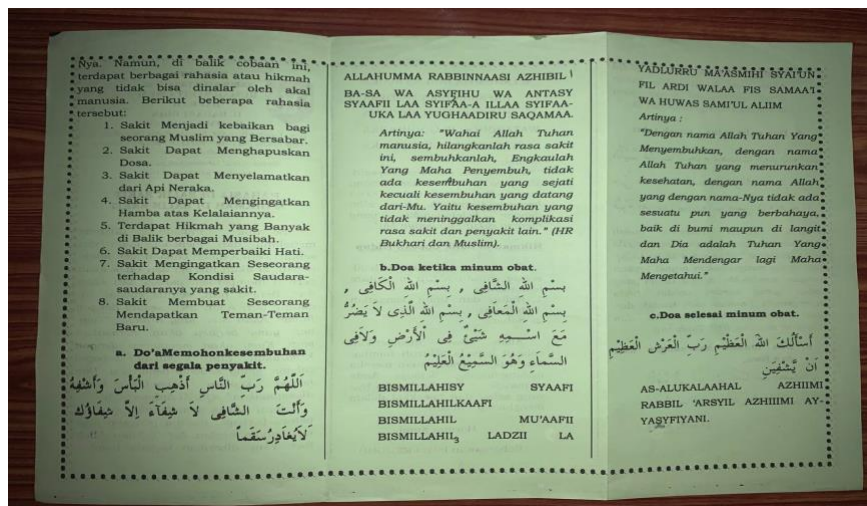 Nya. Namun, di balik cobaan ini,
terdapat berbagai rahasia atau hikmah
yang tidak bisa dinalar oleh akal
manusia. Berikut beberapa rahasia
tersebut:
1. Sakit Menjadi kebaikan bagi
seorang Muslim yang Bersabar.
2. Sakit Dapat Menghapuskan
Dosa.
3. Sakit Dapat Menyelamatkan
dari Api Neraka.
4. Sakit Dapat Mengingatkan
Hamba atas Kelalaiannya.
5. Terdapat Hikmah yang Banyak
di Balik berbagai Musibah.
6. Sakit Dapat Memperbaiki Hati.
7. Sakit Mengingatkan Seseorang
terhadap Kondisi Saudara-
saudaranya yang sakit.
8. Sakit Membuat Seseorang
Mendapatkan Teman-Teman
Baru.
a. Do'aMemohonkesembuhan
dari segala penyakit.
اَللّٰهُمَّ رَبَّ النَّاسِ أَذْهِبِ الْبَأْسَ وَأَشْفِهِ
وَأَنْتَ الشَّافِى لَا شِفَآءَ اِلَّا شِفَاؤُكَ
لَايُغَادِرُ سَقَماً
ALLAHUMMA RABBINNAASI AZHIBIL
BA-SA WA ASYFIHU WA ANTASY
SYAAFII LAA SYIFAA-A ILLAA SYIFAA-
UKA LAA YUGHAADIRU SAQAMAA.
Artinya: "Wahai Allah Tuhan
manusia, hilangkanlah rasa sakit
ini, sembuhkanlah, Engkaulah
Yang Maha Penyembuh, tidak
ada kesembuhan yang sejati
kecuali kesembuhan yang datang
dari-Mu. Yaitu kesembuhan yang
tidak meninggalkan komplikasi
rasa sakit dan penyakit lain." (HR
Bukhari dan Muslim).
b.Doa ketika minum obat.
بِسْمِ اللهِ الشَّافِى , بِسْمِ اللهِ الْكَافِى ,
بِسْمِ اللهِ الْمَعَافِى , بِسْمِ اللهِ الَّذِى لَا يَضُرُّ
مَعَ اسْـــمِهِ شَيْئٌ فِى الْأَرْضِ وَلَافِى
السَّمَاءِ وَهُوَ السَّمِيْعُ الْعَلِيْمُ
BISMILLAHISY SYAAFI
BISMILLAHILKAAFI
BISMILLAHIL MU'AAFII
BISMILLAHIL LADZII LA
3
YADLURRU MA'ASMIHI SYAI'UN
FIL ARDI WALAA FIS SAMAA'I
WA HUWAS SAMI'UL ALIIM
Artinya :
"Dengan nama Allah Tuhan Yang
Menyembuhkan, dengan nama
Allah Tuhan yang menurunkan
kesehatan, dengan nama Allah
yang dengan nama-Nya tidak ada
sesuatu pun yang berbahaya,
baik di bumi maupun di langit
dan Dia adalah Tuhan Yang
Maha Mendengar lagi Maha
Mengetahui."
c.Doa selesai minum obat.
أَسْأَلُكَ اللهَ الْعَظِيْمِ رَبَّ الْعَرْشِ الْعَظِيْمِ
اَنْ يَّشْفِيَنِ
AS-ALUKALAAHAL AZHIIMI
RABBIL 'ARSYIL AZHIIIMI AY-
YASYFIYANI.